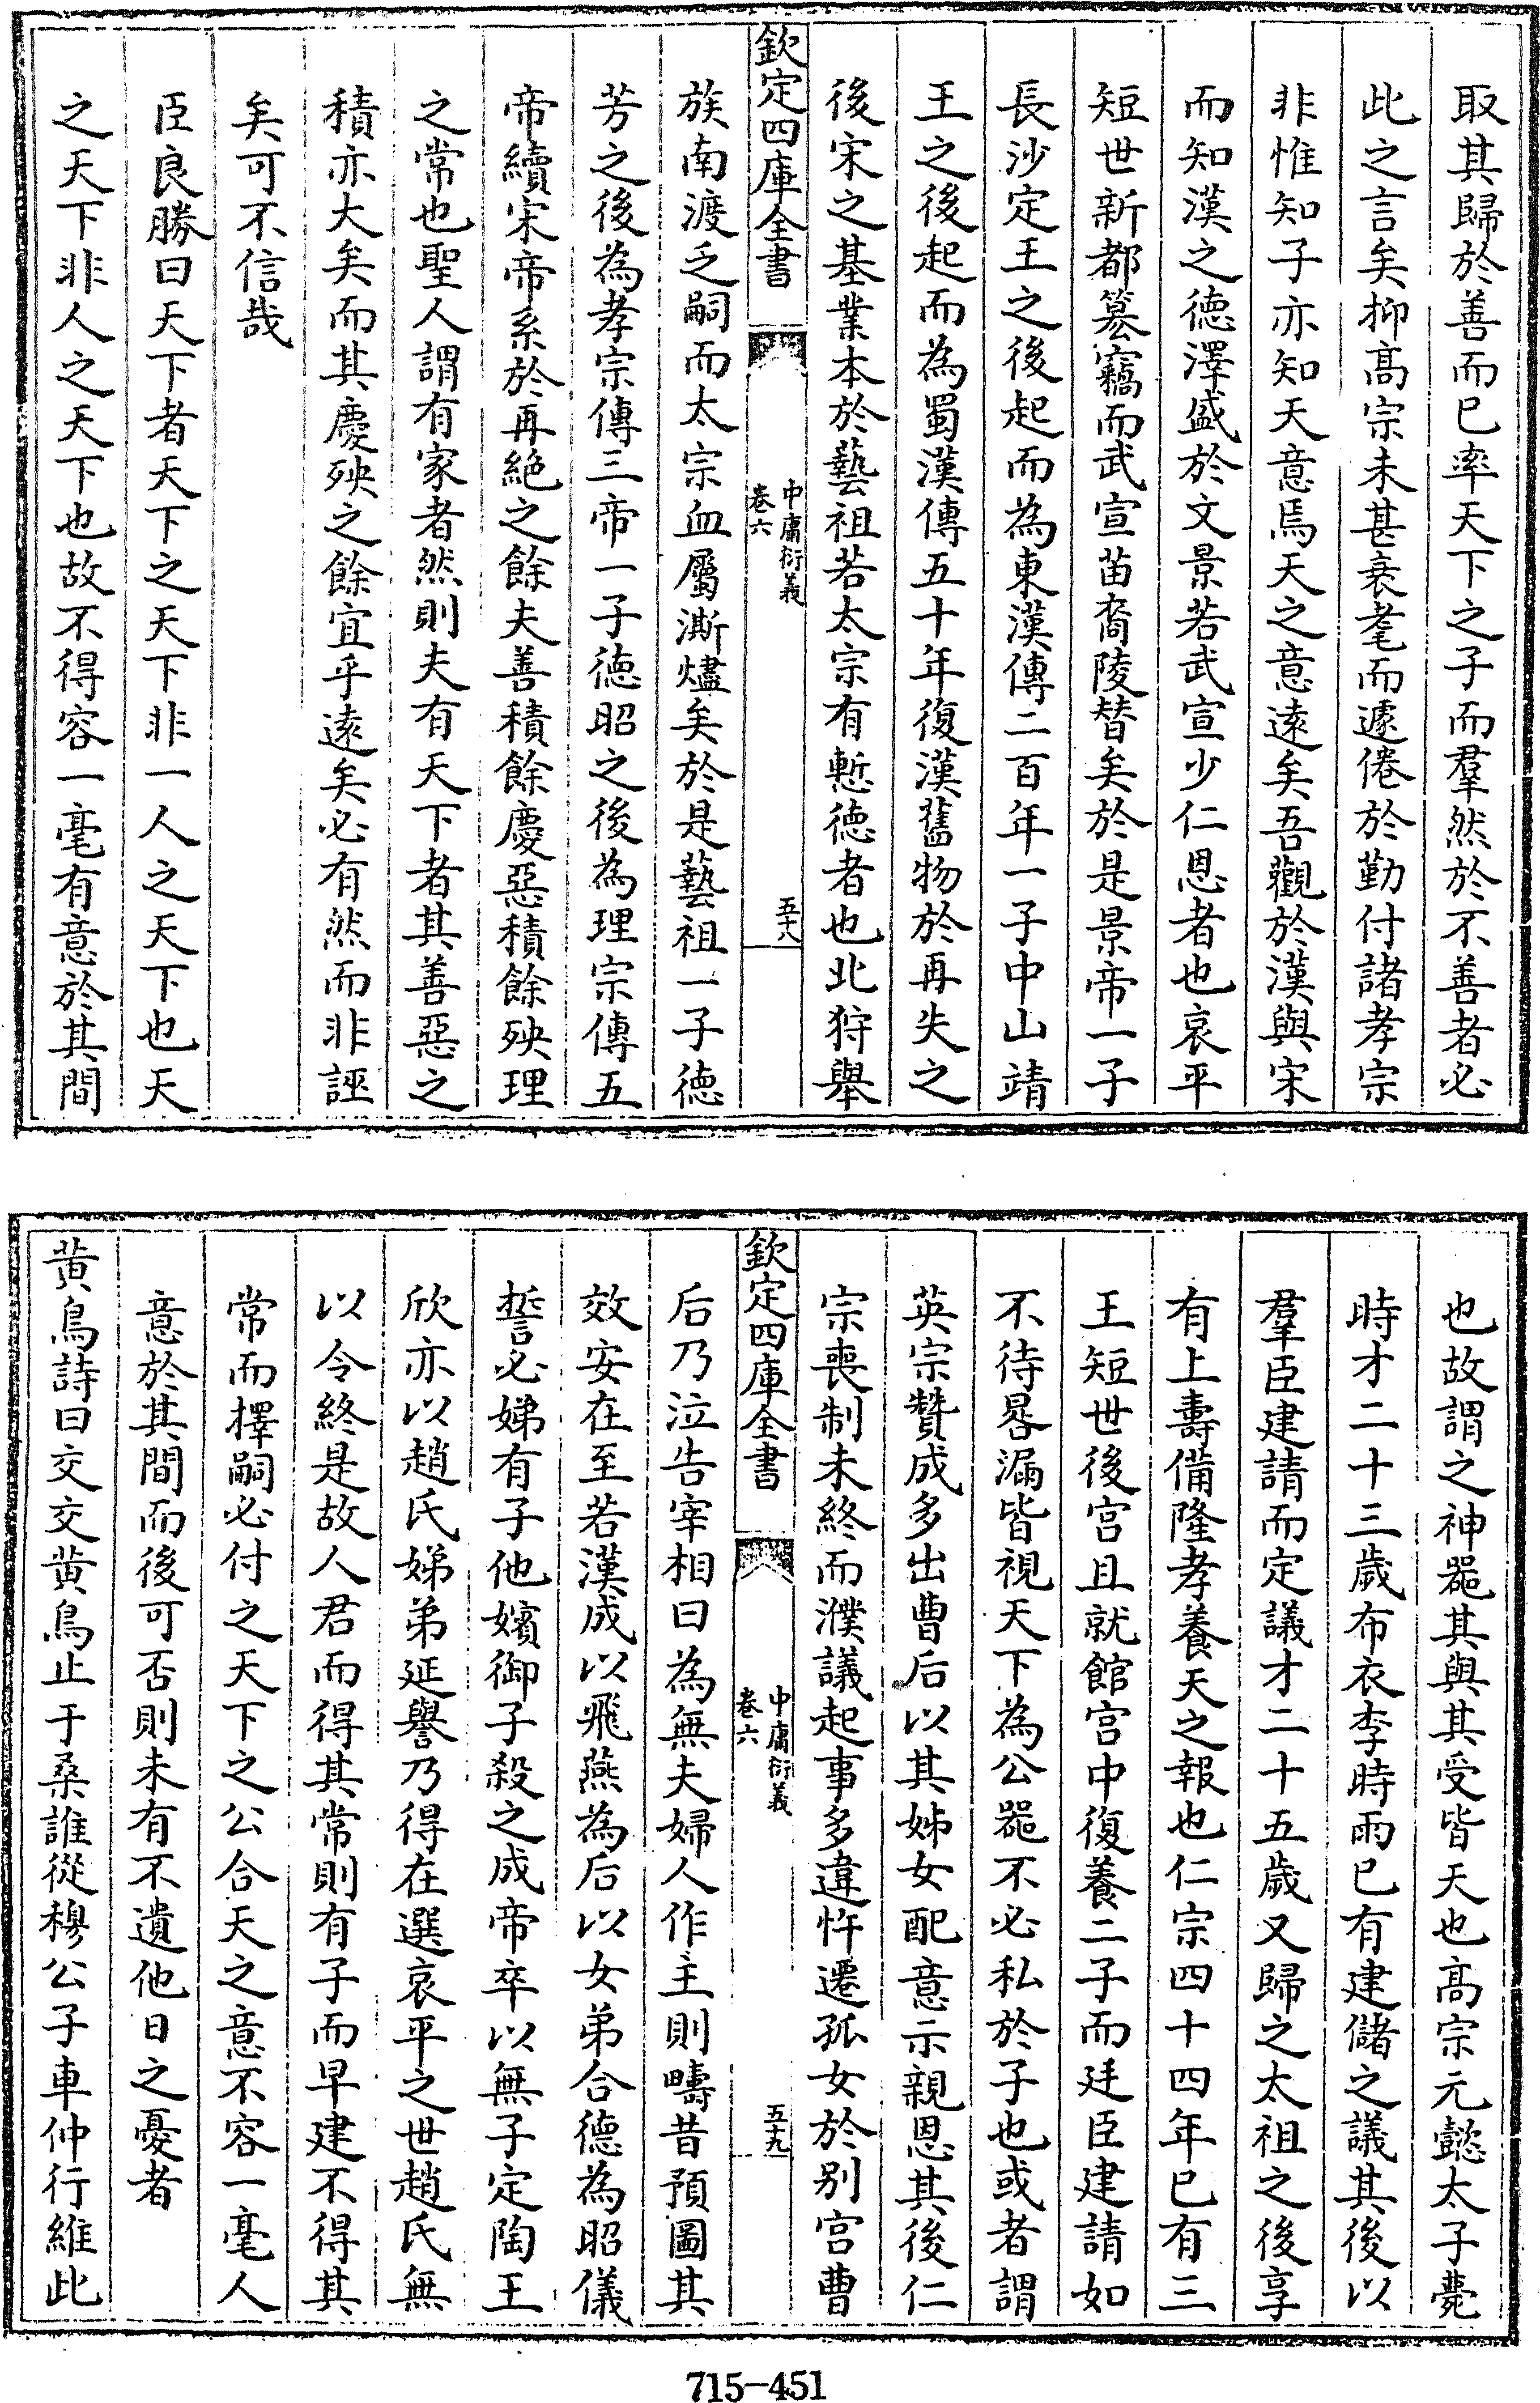 取其歸於善而已率天下之子而羣然於不善者必
此之言矣抑髙宗未甚衰耄而遽倦於勤付諸孝宗
非惟知子亦知天意焉天之意逺矣吾觀於漢與宋
而知漢之德澤盛於文景若武宣少仁恩者也哀平
短世新都簒竊而武宣苗裔陵替矣於是景帝一子
長沙定王之後起而為東漢傳二百年一子中山靖
王之後起而為蜀漢傳五十年復漢舊物於再失之
後宋之基業本於藝祖若太宗有慙德者也北狩舉
欽定四庫全書
中庸衍義
卷六
五十八
族南渡乏嗣而太宗血屬澌燼矣於是藝祖一子德
芳之後為孝宗傳三帝一子德昭之後為理宗傳五
帝續宋帝系於再絶之餘夫善積餘慶惡積餘殃理
之常也聖人謂有家者然則夫有天下者其善惡之
積亦大矣而其慶殃之餘宜乎逺矣必有然而非誣
矣可不信哉
臣良勝曰天下者天下之天下非一人之天下也天
之天下非人之天下也故不得容一毫有意於其間
也故謂之神器其與其受皆天也髙宗元懿太子薨
時才二十三歲布衣李時雨已有建儲之議其後以
羣臣建請而定議才二十五歲又歸之太祖之後享
有上壽備隆孝養天之報也仁宗四十四年已有三
王短世後宫且就館宫中復養二子而廷臣建請如
不待晷漏皆視天下為公器不必私於子也或者謂
英宗贊成多出曹后以其姊女配意示親恩其後仁
宗喪制未終而濮議起事多違忤遷孤女於别宫曹
欽定四庫全書
中庸衍義
卷六
五十九
后乃泣告宰相曰為無夫婦人作主則疇昔預圖其
效安在至若漢成以飛燕為后以女弟合德為昭儀
誓必娣有子他嬪御子殺之成帝卒以無子定陶王
欣亦以趙氏娣弟延譽乃得在選哀平之世趙氏無
以令終是故人君而得其常則有子而早建不得其
常而擇嗣必付之天下之公合天之意不容一毫人
意於其間而後可否則未有不遺他日之憂者
黄鳥詩曰交交黄鳥止于桑誰從穆公子車仲行維此
715-451